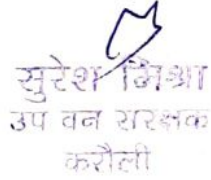 सुरेश मिश्रा
उप वन संरक्षक
करौली